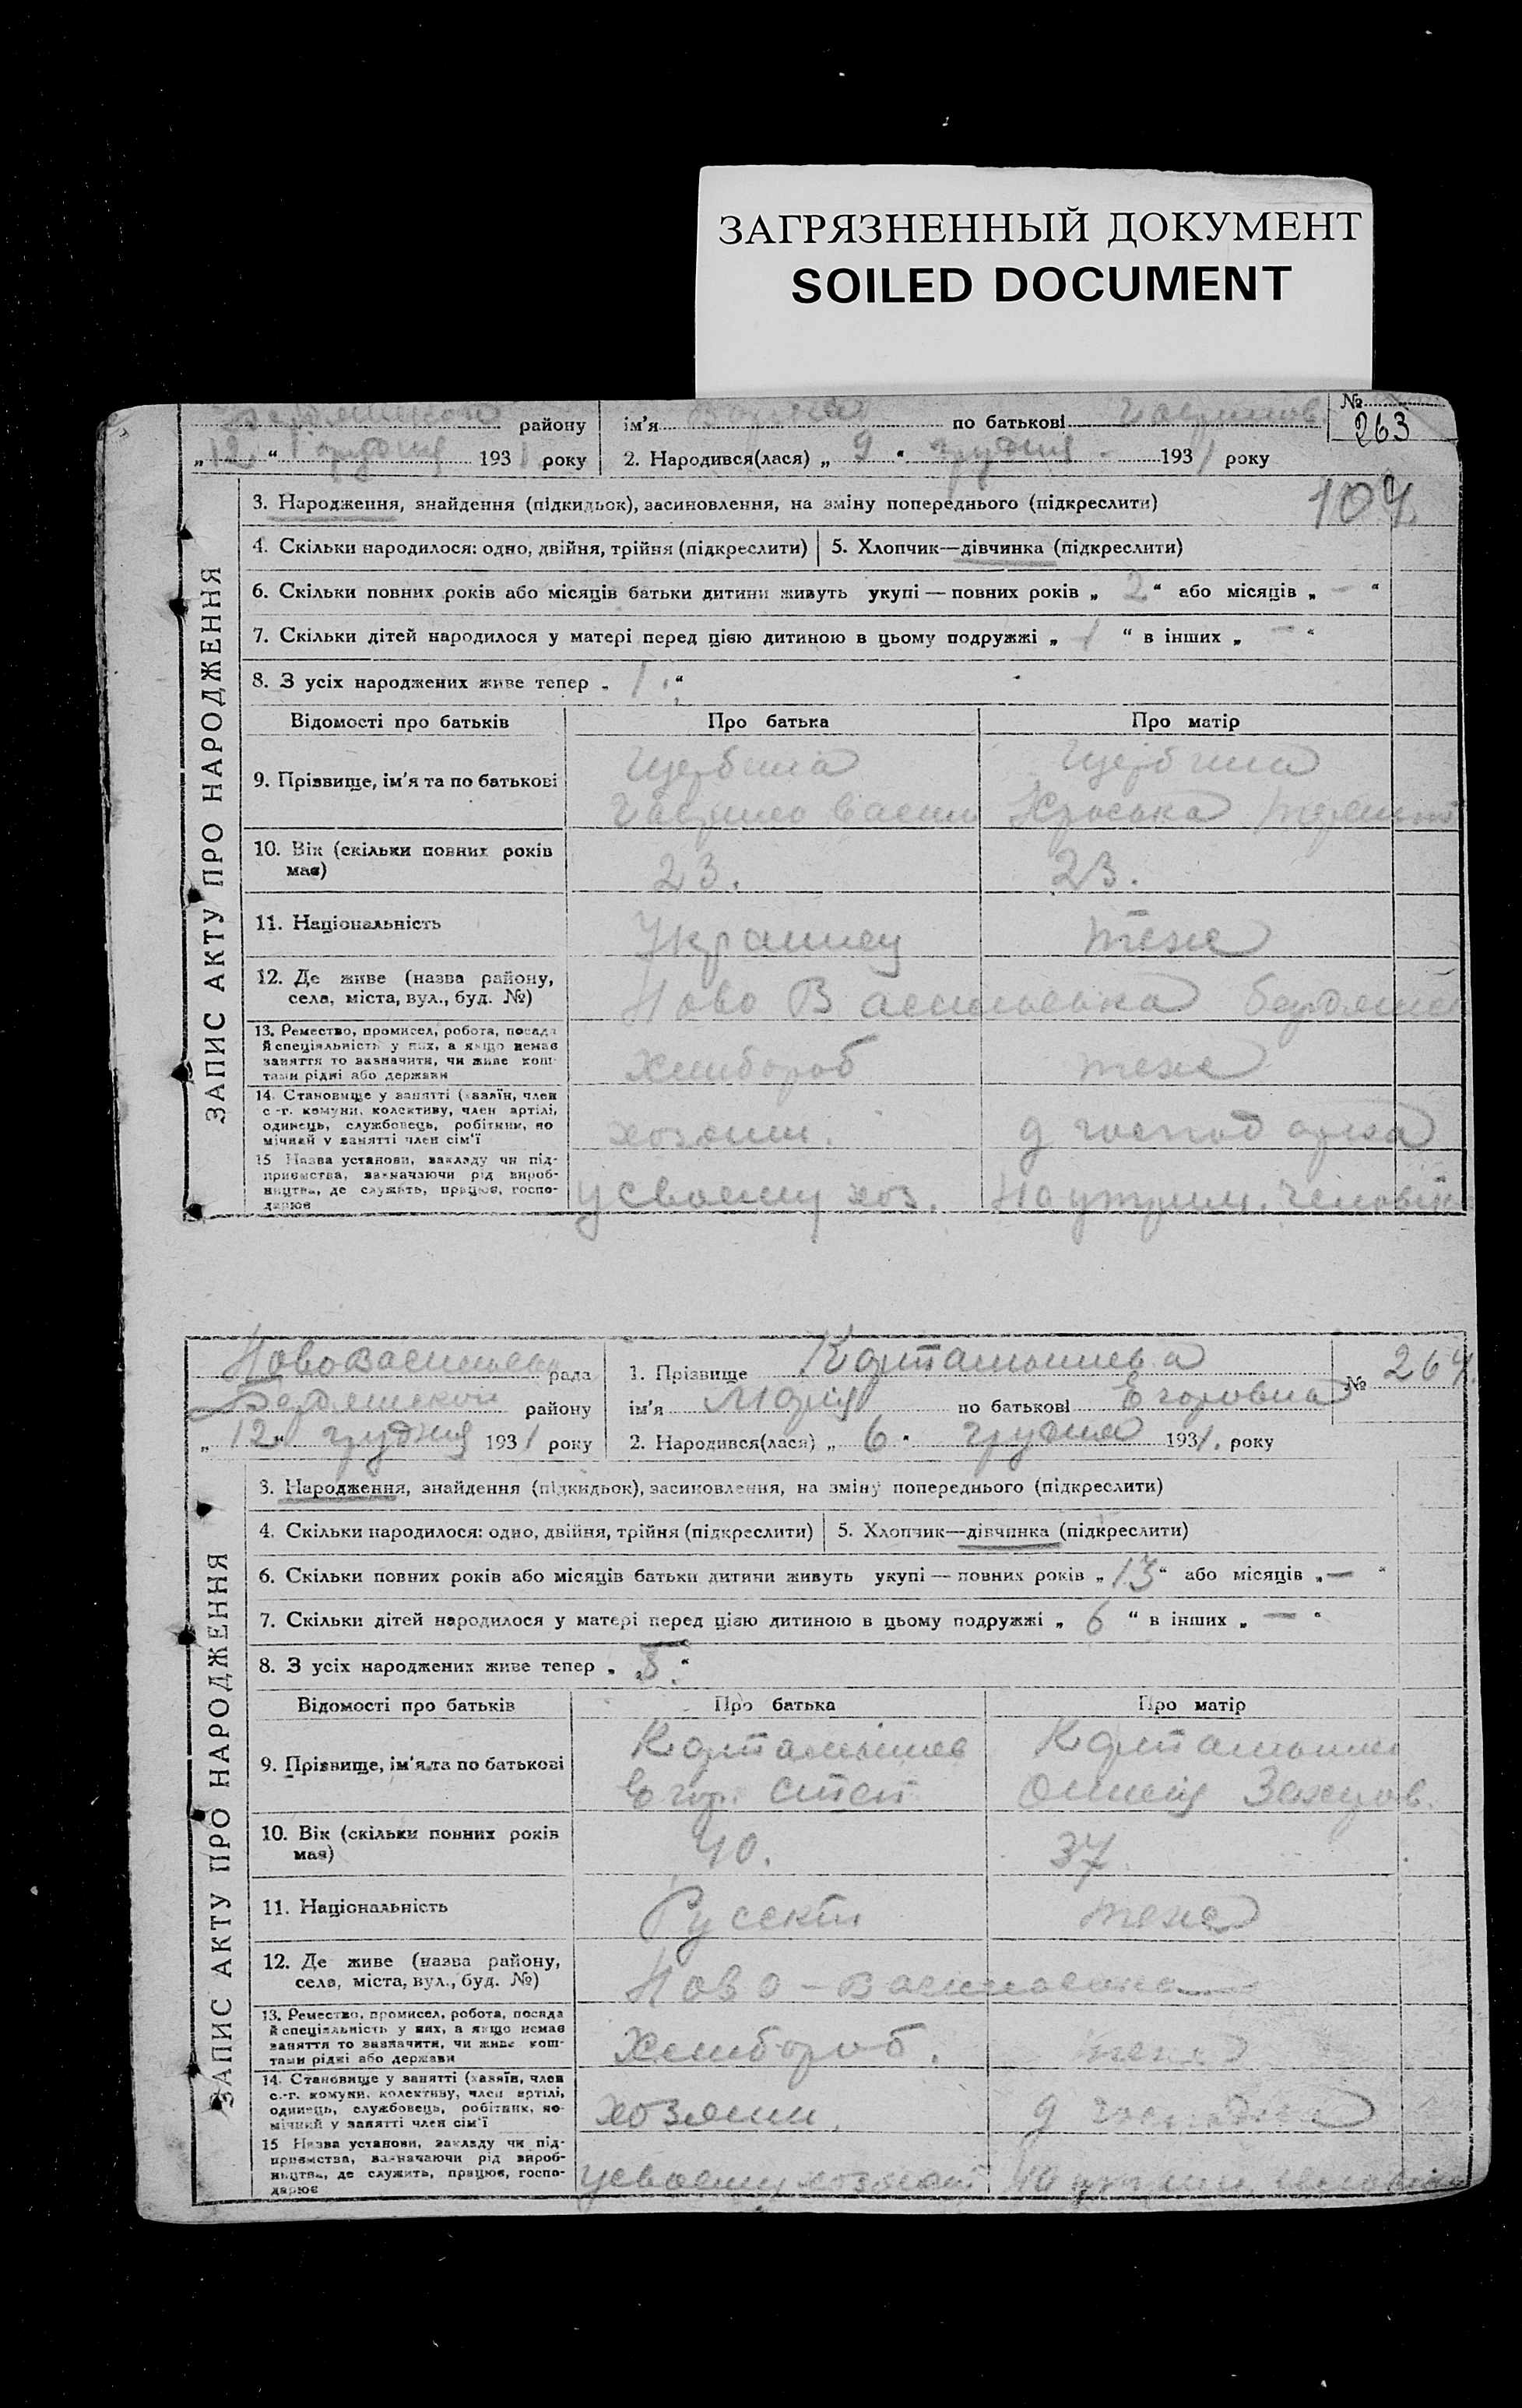 ЗАГРЯЗНЕННЫЙ ДОКУМЕНТ
SOILED DOCUMENT
району ім'я по батькові № 263
„12“ Грудня 1931 року 2. Народився(лася) „9“ грудня 1931 року
107
ЗАПИС АКТУ ПРО НАРОДЖЕННЯ
3. Народження, знайдення (підкидьок), засиновлення, на зміну попереднього (підкреслити)
4. Скільки народилося: одно, двійня, трійня (підкреслити) 5. Хлопчик—дівчинка (підкреслити)
6. Скільки повних років або місяців батьки дитини живуть укупі — повних років „2“ або місяців „—“
7. Скільки дітей народилося у матері перед цією дитиною в цьому подружжі „1“ в інших „—“
8. З усіх народжених живе тепер „1“
Відомості про батьків Про батька Про матір
9. Прізвище, ім'я та по батькові
Щербина Щербина
10. Вік (скільки повних років має) 23. 23.
11. Національність Украинец тоже
12. Де живе (назва району, села, міста, вул., буд. №) Ново Васильевка
13. Ремество, промисел, робота, посада й спеціяльність у них, а якщо немає заняття то зазначити, чи живе коштами рідні або держави Хлибороб тоже
14. Становище у занятті (хазяїн, член с.-г. комуни, колективу, член артілі, одинець, службовець, робітник, помічний у занятті член сім'ї хозяин.
15 Назва установи, закладу чи підприємства, зазначаючи рід виробництва, де служить, працює, господарює у своему хоз. На утрим.
рада 1. Прізвище Картамышева № 264
району ім'я Мария по батькові Егоровна
„12“ грудня 1931 року 2. Народився(лася) „6“ грудня 1931. року
ЗАПИС АКТУ ПРО НАРОДЖЕННЯ
3. Народження, знайдення (підкидьок), засиновлення, на зміну попереднього (підкреслити)
4. Скільки народилося: одно, двійня, трійня (підкреслити) 5. Хлопчик—дівчинка (підкреслити)
6. Скільки повних років або місяців батьки дитини живуть укупі — повних років „13“ або місяців „—“
7. Скільки дітей народилося у матері перед цією дитиною в цьому подружжі „6“ в інших „—“
8. З усіх народжених живе тепер
Відомості про батьків Про батька Про матір
9. Прізвище, ім'я та по батькові
Картамышев
Егор. Степ.
10. Вік (скільки повних років має) 40. 37
11. Національність тоже
12. Де живе (назва району, села, міста, вул., буд. №) Ново-Васильевка
13. Ремество, промисел, робота, посада й спеціяльність у них, а якщо немає заняття то зазначити, чи живе коштами рідні або держави Хлибороб. тоже
14. Становище у занятті (хазяїн, член с.-г. комуни, колективу, член артілі, одинець, службовець, робітник, помічний у занятті член сім'ї хозяин.
15 Назва установи, закладу чи підприємства, зазначаючи рід виробництва, де служить, працює, господарює у своему